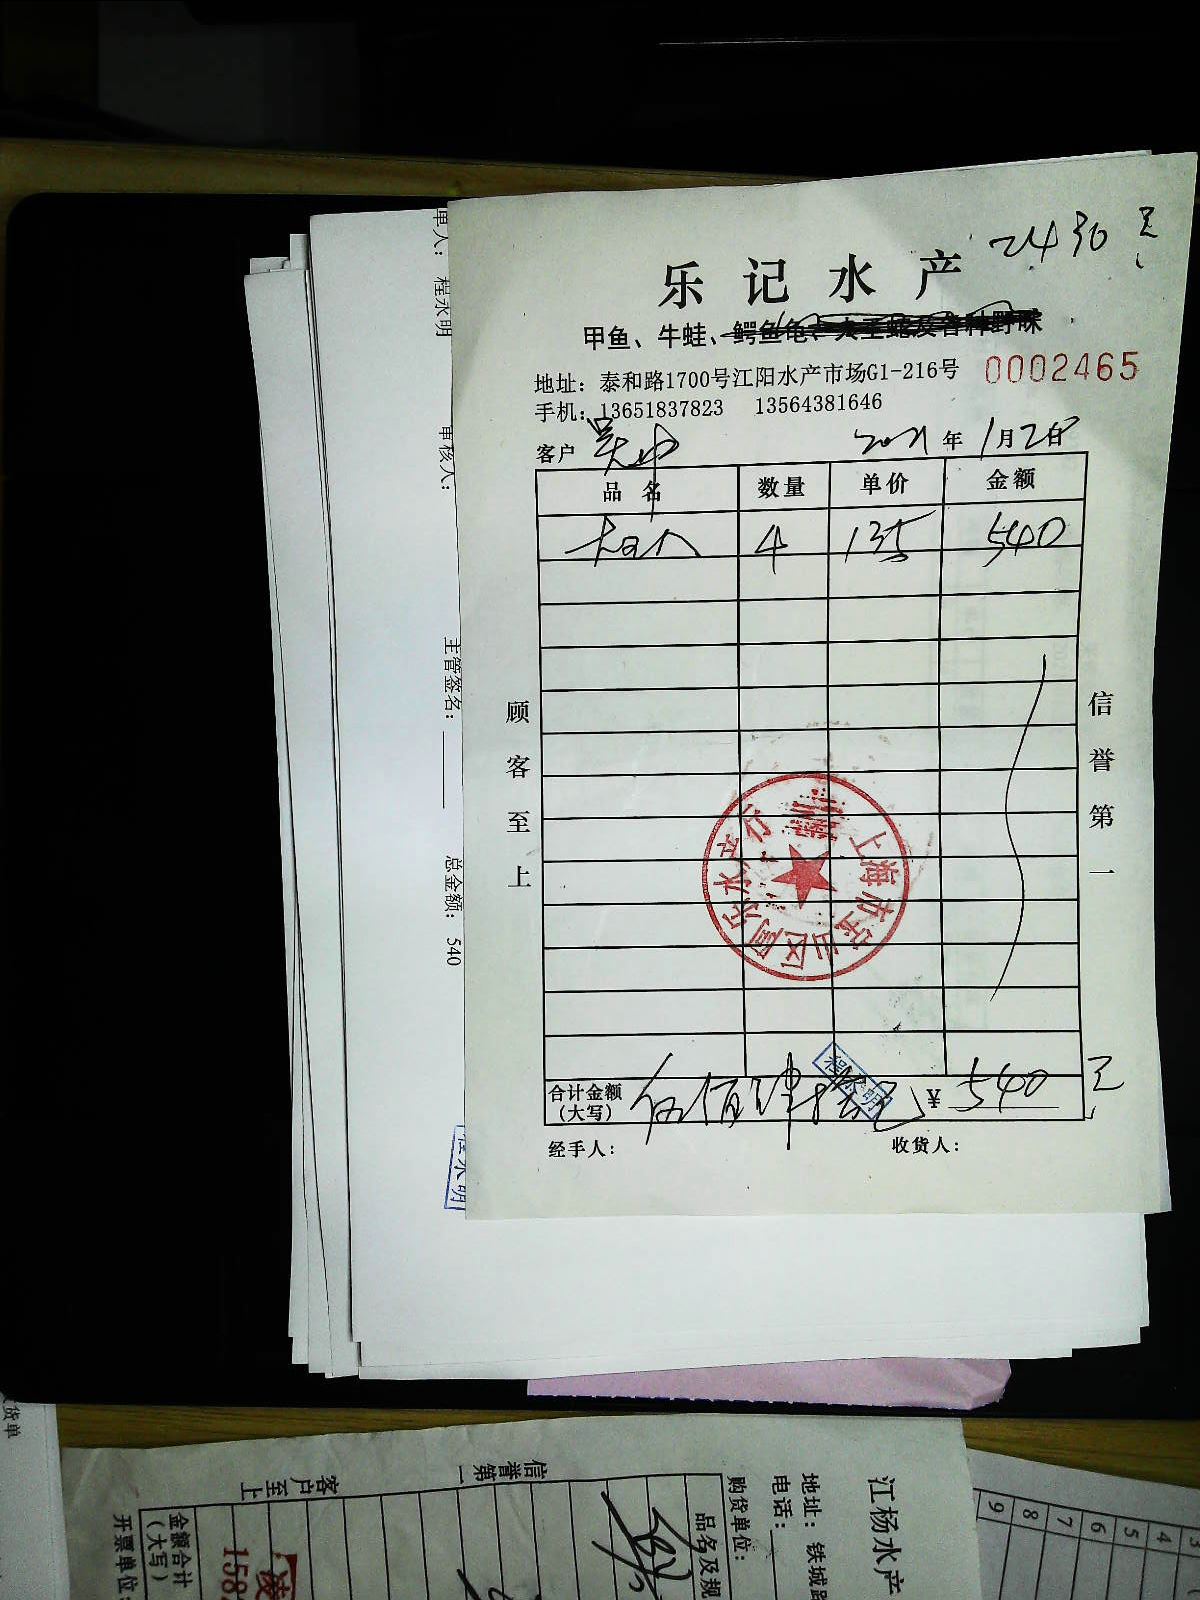 2430元
乐记水产
甲鱼、牛蛙、鳄鱼龟、大王蛇及各种野味
地址：泰和路1700号江阳水产市场G1-216号
0002465
手机：13651837823 13564381646
客户 吴中 2021年1月2日
品名 数量 单价 金额
4 135 540
顾客至上
信誉第一
上海市宝山区阿乐水产行
合计金额（大写） 伍佰肆拾元 ¥ 540元
程永明
经手人： 收货人：
单人： 程永明
审核人：
主管签名：
总金额： 540
程永明
货单
江杨水产
地址： 铁城路
电话：
购货单位：
品名及规
信誉第一
客户至上
金额合计（大写）
开票单位：
凌
158
3
4
5
6
7
8
9